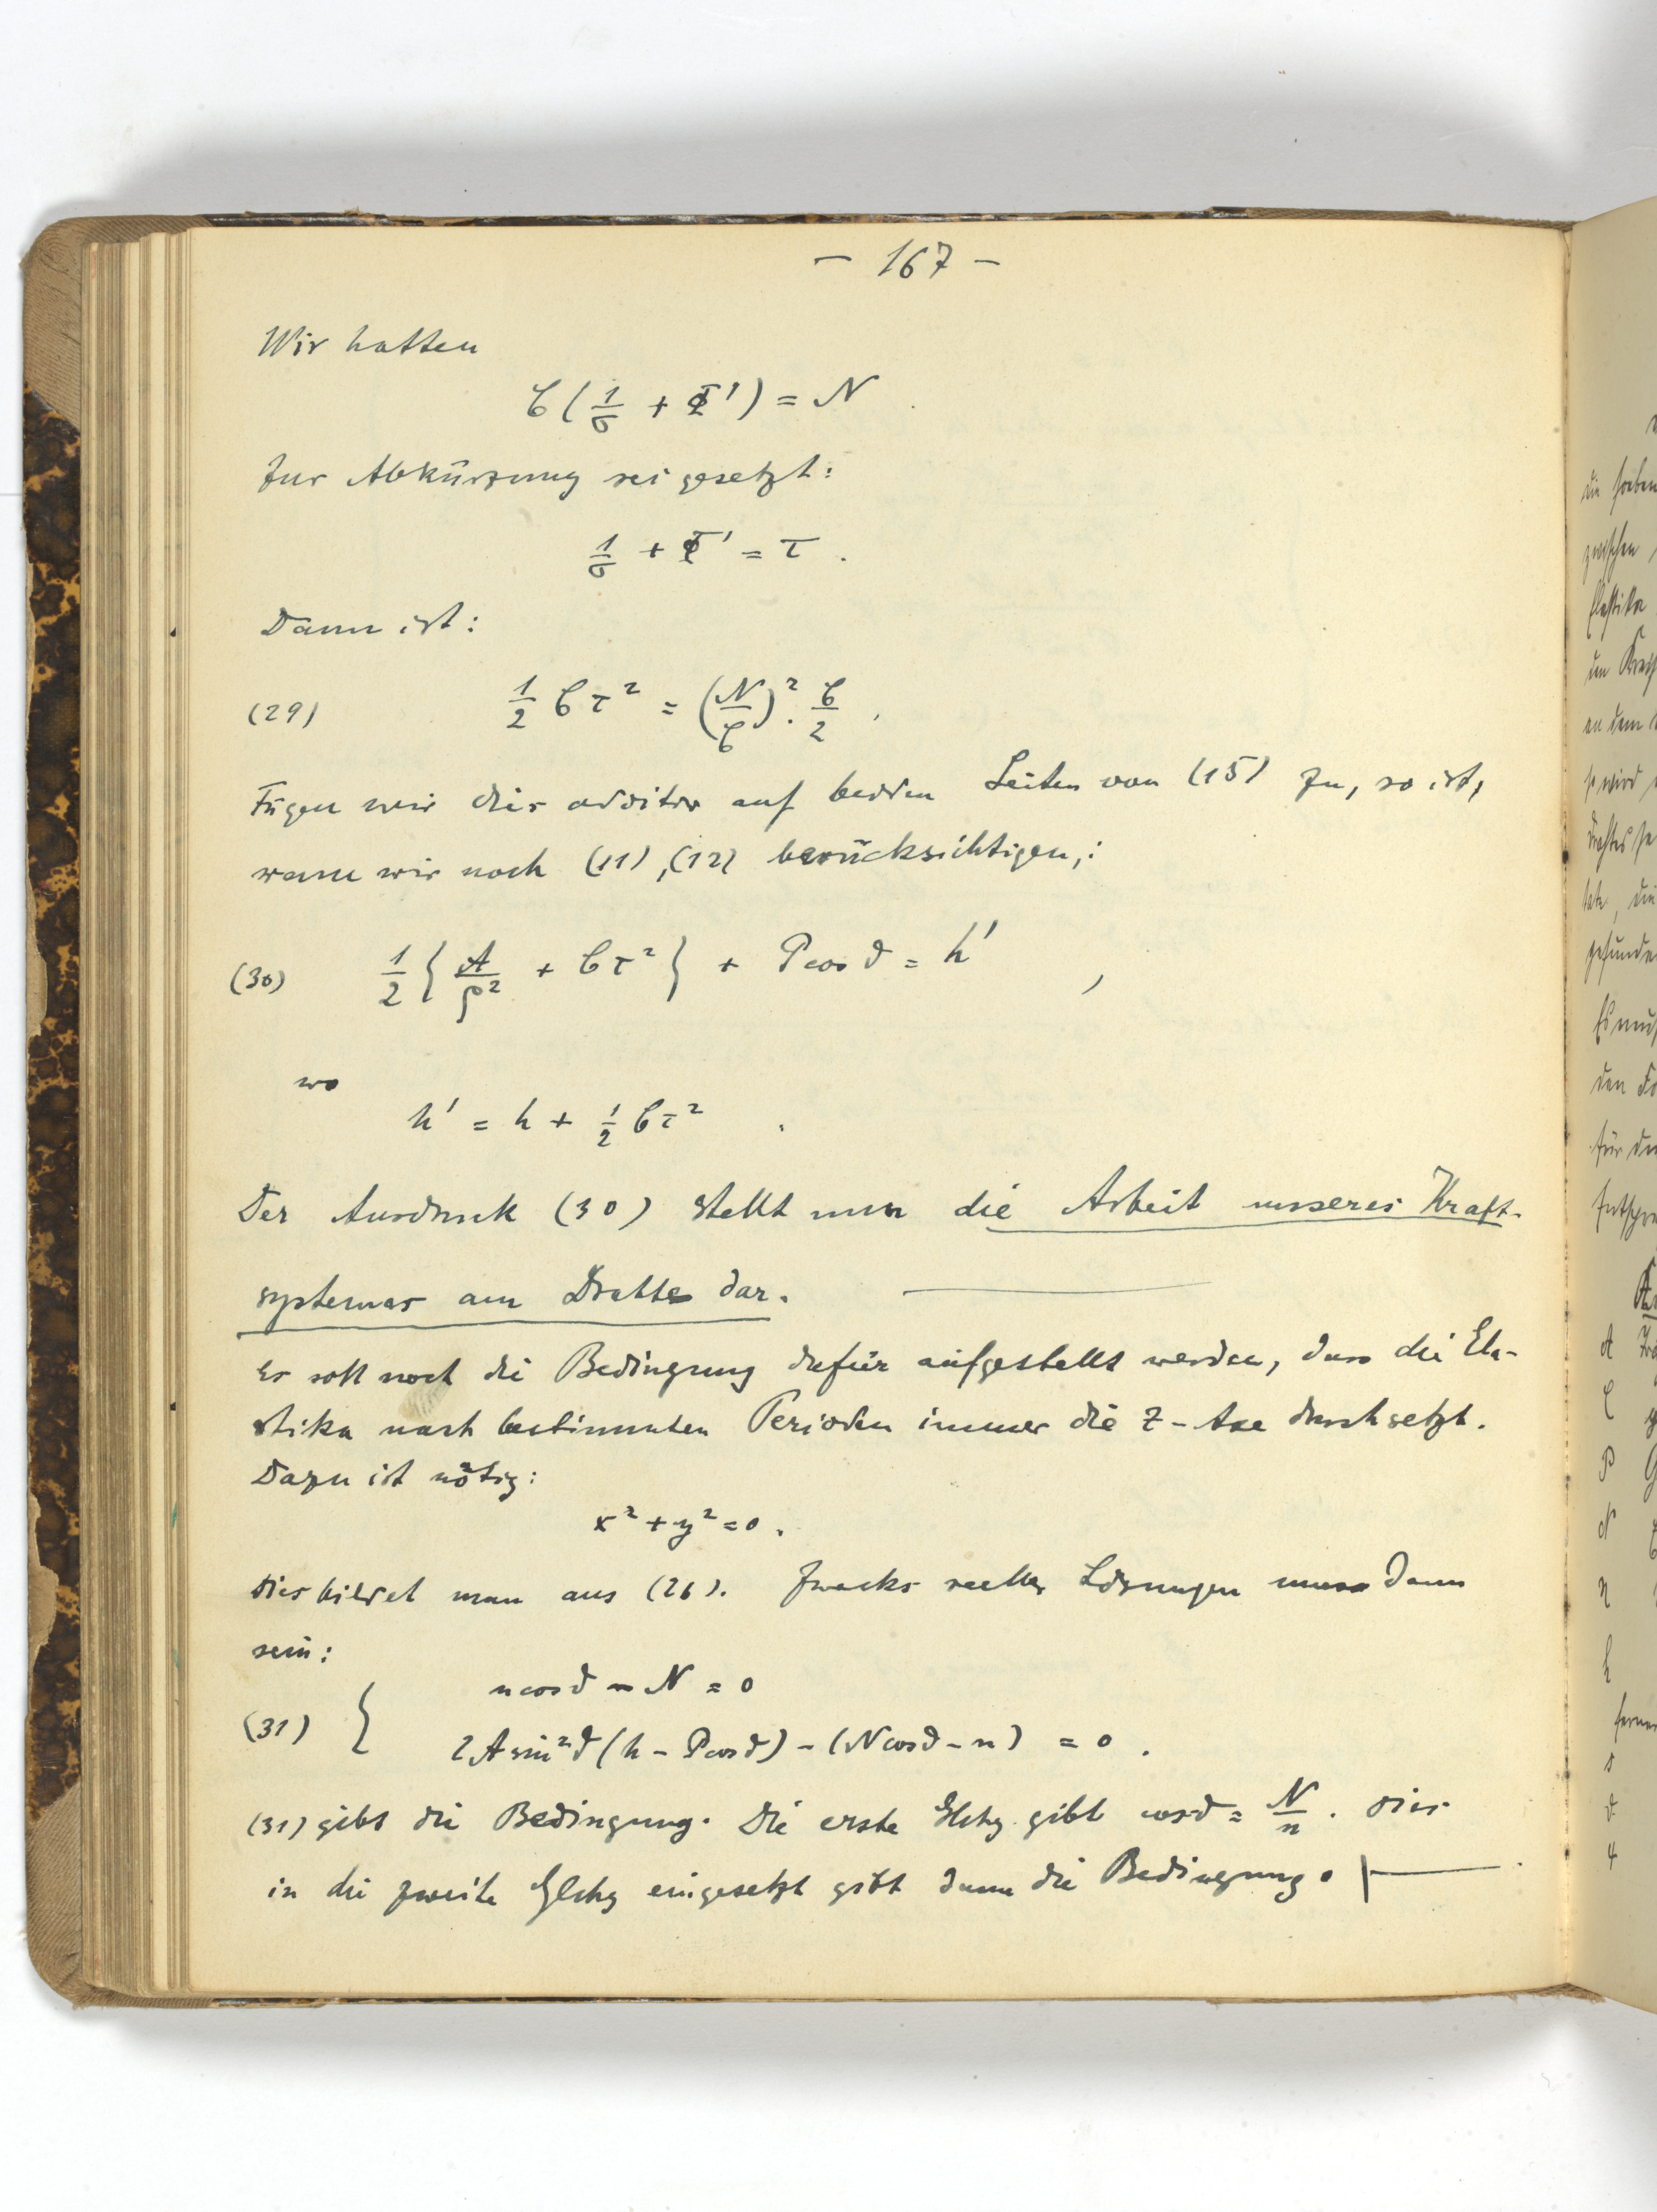 – 167 –
Wir hatten
C(1/σ + Φ') = N
Zur Abkürzung sei gesetzt:
1/σ + Φ' = τ.
Dann ist:
(29) 1/2 C τ² = (N/C)² · C/2,
Fügen wir dies additiv auf beiden Seiten von (15) zu, so ist,
wenn wir noch (11), (12) berücksichtigen,:
(30) 1/2 { A/ρ² + Cτ² } + P cos ϑ = h',
wo
h' = h + 1/2 Cτ².
Der Ausdruck (30) stellt nun die Arbeit unseres Kraft-
systemes am Drahte dar. —
Es soll noch die Bedingung dafür aufgestellt werden, dass die Ela-
stika nach bestimmten Perioden immer die Z-Axe durchsetzt.
Dazu ist nötig:
x² + y² = 0.
Dies bildet man aus (26). Zwecks reeller Lösungen muss dann
sein:
n cos ϑ – N = 0
(31) {
2A sin²ϑ (h – P cos ϑ) – (N cos ϑ – n) = 0.
(31) gibt die Bedingung. Die erste Glchg. gibt cos ϑ = N/n. Dies
in die zweite Glchg eingesetzt gibt dann die Bedingung. |—
die soeben
zwischen
Elastika
an dem
so wird
Drahtes
gefunden
Es muß
den
für
A
C
P
N
n
h
ferner
s
ϑ
ψ